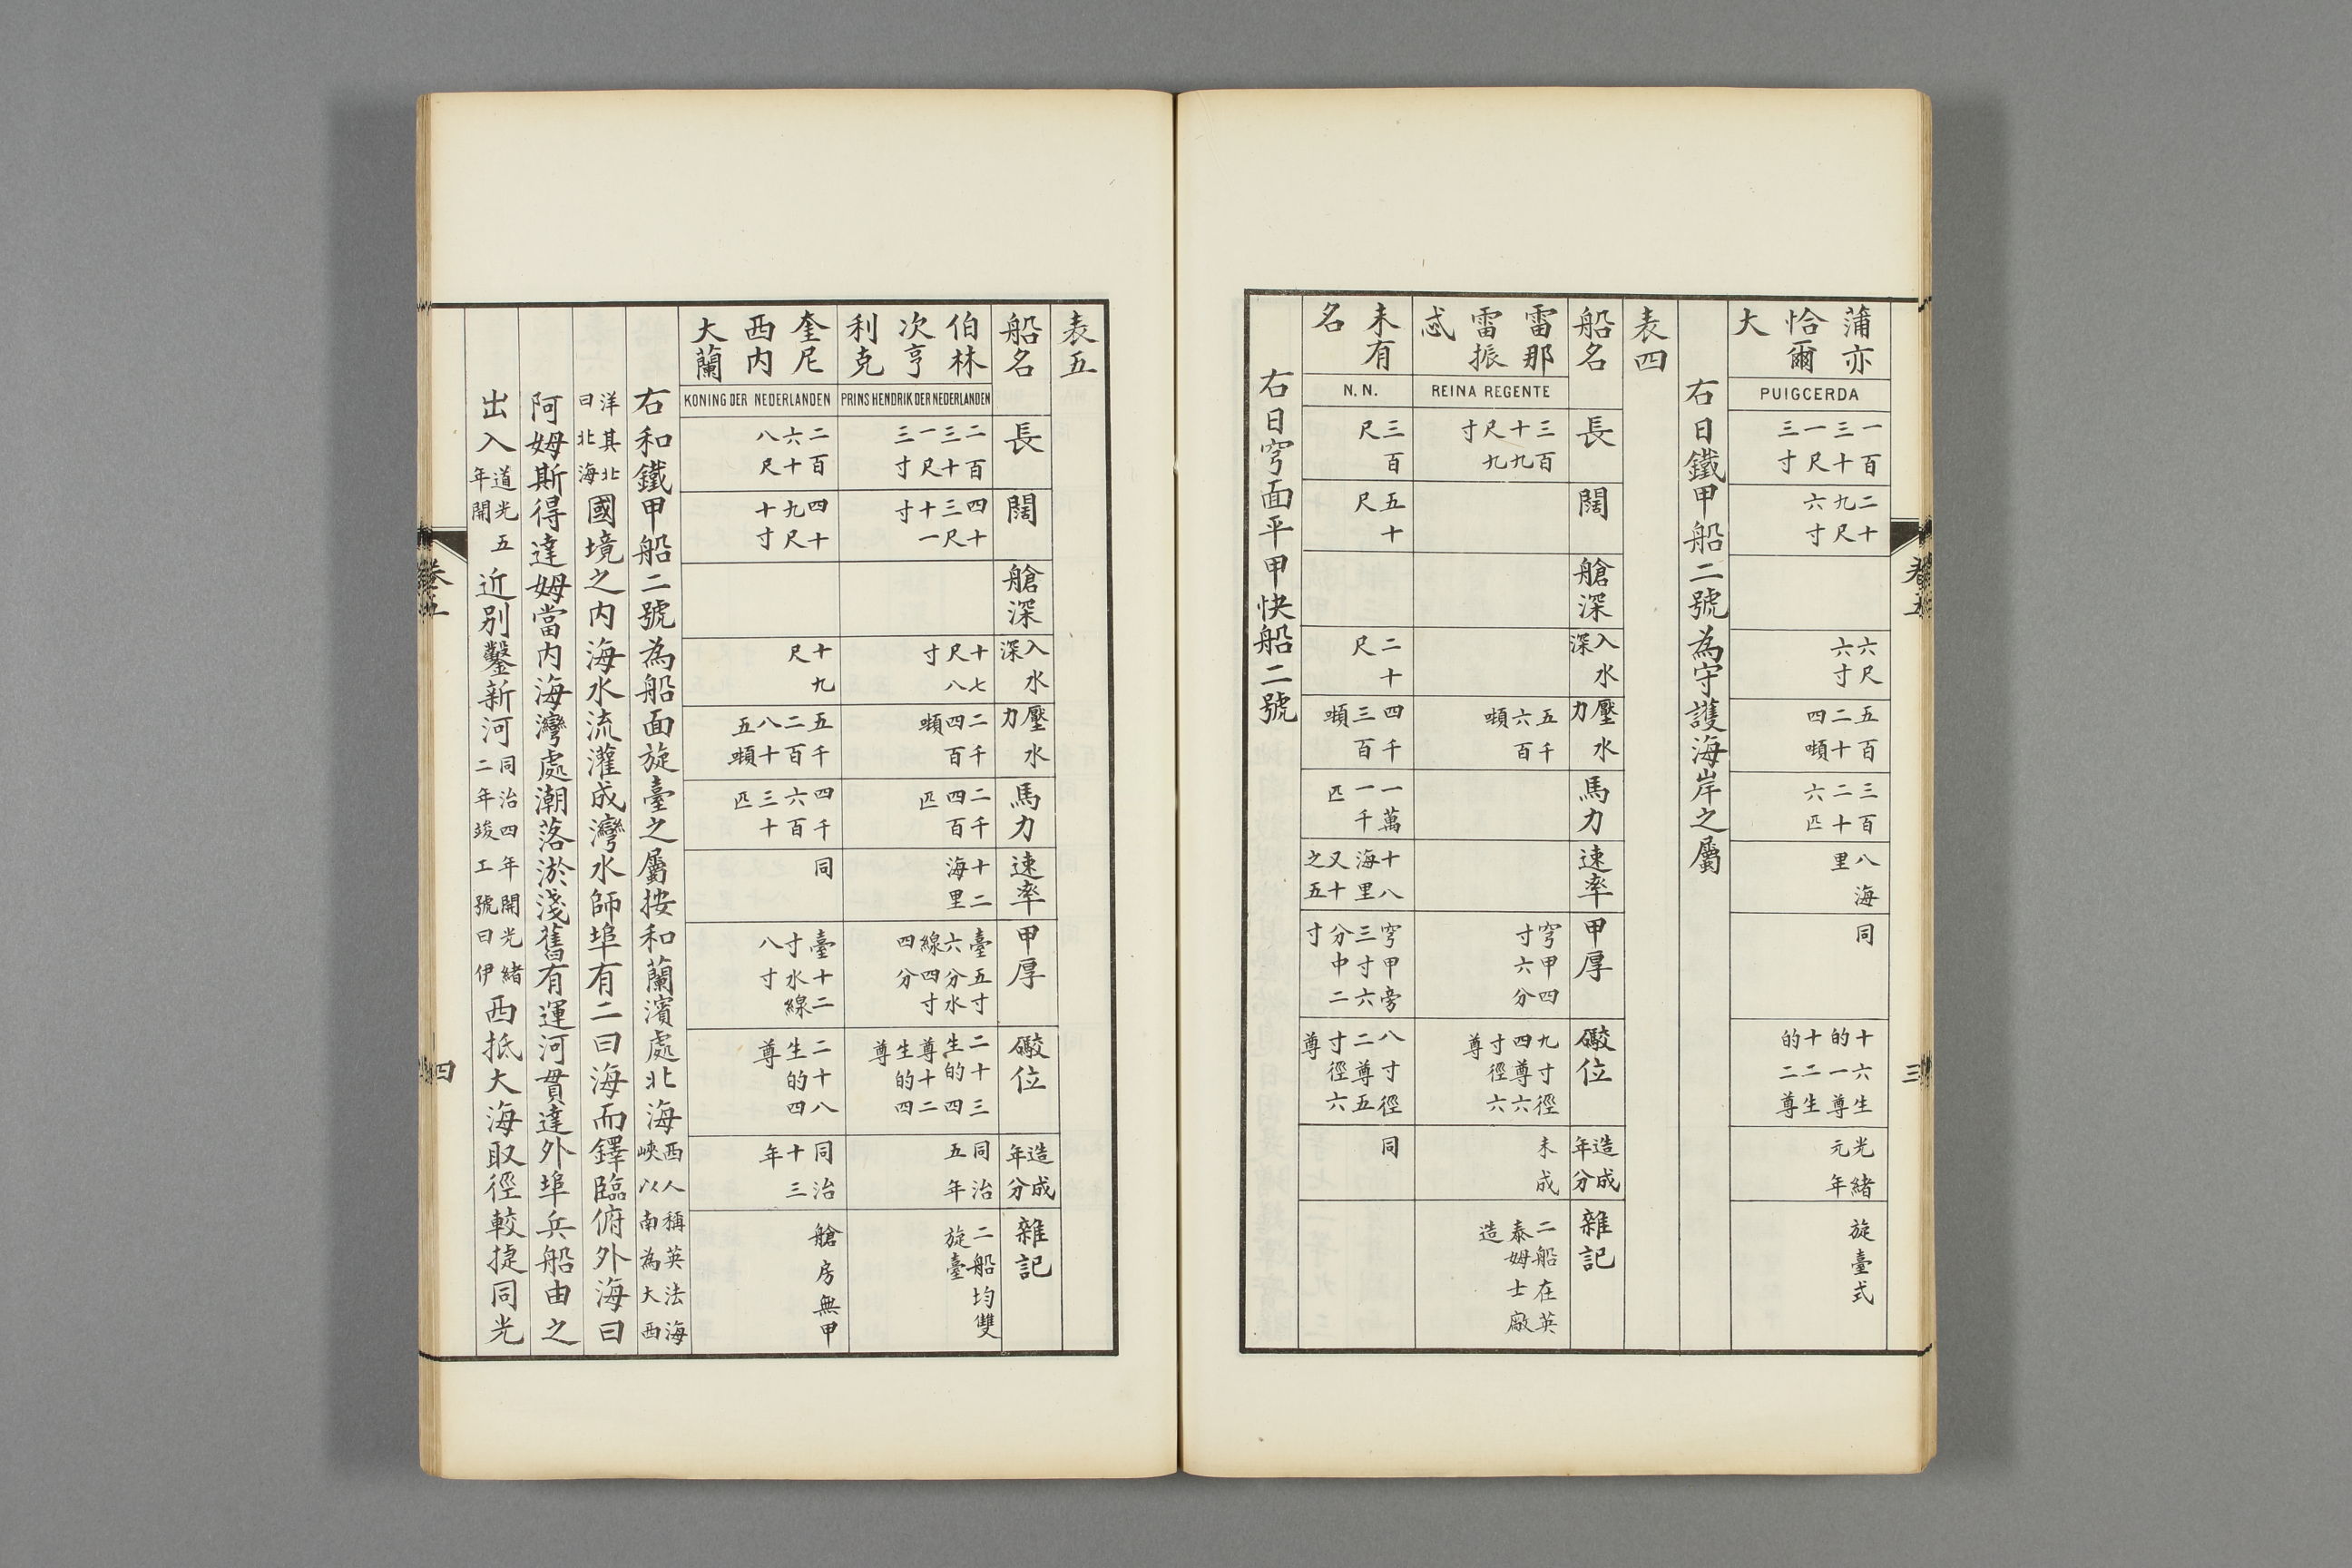 蒲亦
恰爾
大
PUIGCERDA
一百
三十
一尺
三寸
二十
九尺
六寸
六尺
六寸
五百
二十
四噸
三百
二十
六匹
八海
里
同
十六生
的一尊
十二生
的二尊
光緒
元年
旋臺式
右日鐵甲船二號為守護海岸之屬
表四
船名
長
闊
艙深
入水
深
壓水
力
馬力
速率
甲厚
礮位
造成
年分
雜記
雷那
雷振
忒
REINA REGENTE
三百
十九
尺九
寸
五千
六百
噸
穹甲四
寸六分
九寸徑
四尊六
寸徑六
尊
未成
二船在英
泰姆士廠
造
未有
名
N. N.
三百
尺
五十
尺
二十
尺
四千
三百
噸
一萬
一千
匹
十八
海里
又十
之五
穹甲旁
三寸六
分中二
寸
八寸徑
二尊五
寸徑六
尊
同
右日穹面平甲快船二號
卷五
三
表五
船名
長
闊
艙深
入水
深
壓水
力
馬力
速率
甲厚
礮位
造成
年分
雜記
伯林
次亨
利克
PRINS HENDRIK DER NEDERLANDEN
二百
三十
一尺
三寸
四十
三尺
十一
寸
十七
尺八
寸
二千
四百
噸
二千
四百
匹
十二
海里
臺五寸
六分水
線四寸
四分
二十三
生的四
尊十二
生的四
尊
同治
五年
二船均雙
旋臺
奎尼
西內
大蘭
KONING DER NEDERLANDEN
二百
六十
八尺
四十
九尺
十寸
十九
尺
五千
二百
八十
五噸
四千
六百
三十
匹
同
臺十二
寸水線
八寸
二十八
生的四
尊
同治
十三
年
艙房無甲
右和鐵甲船二號為船面旋臺之屬按和蘭濱處北海西人稱英法海峽以南為大西
洋其北曰北海國境之內海水流灌成灣水師埠有二曰海而鐸臨俯外海曰
阿姆斯得達姆當內海灣處潮落淤淺舊有運河貫達外埠兵船由之
出入道光五年開近別鑿新河同治四年開光緒二年竣工號曰伊西抵大海取徑較捷同光
卷五
四